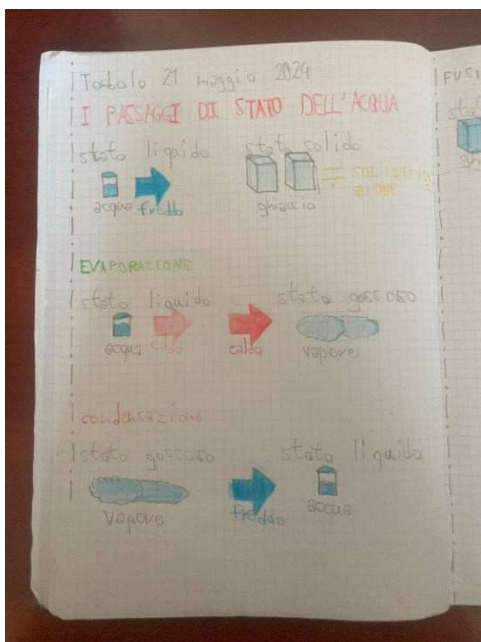 Tombolo 21 maggio 2024
I PASSAGGI DI STATO DELL'ACQUA
stato liquido stato solido
= SOLIDIFICA=
ZIONE
acqua freddo ghiaccio
EVAPORAZIONE
stato liquido stato gassoso
acqua caldo caldo vapore
condensazione
stato gassoso stato liquido
vapore freddo accua
FUSI